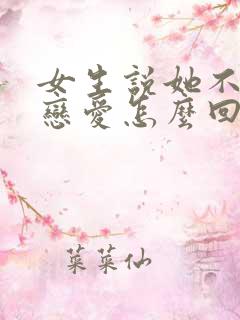 女生說她不
戀愛怎麼回
菜菜仙